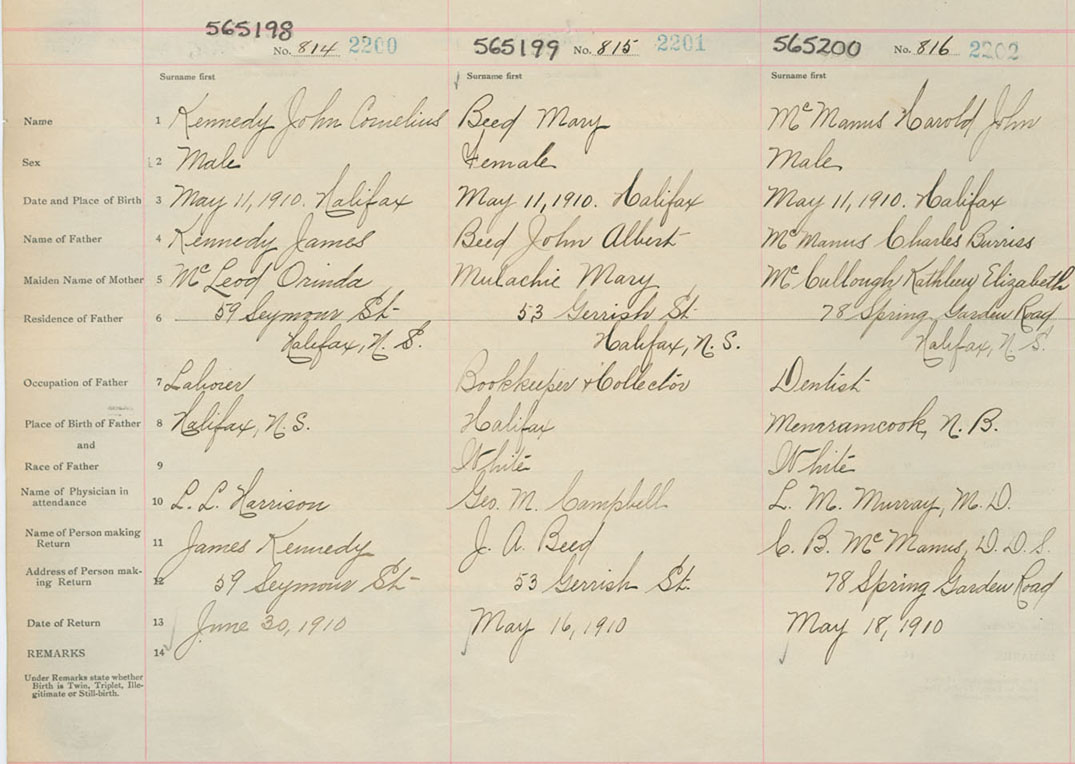 565198
No. 814 2200
565199 No. 815 2201
565200 No. 816 2202
Surname first Surname first Surname first
Name 1 Kennedy John Cornelius Beed Mary McManus Harold John
Sex 2 Male Female Male
Date and Place of Birth 3 May 11, 1910. Halifax May 11, 1910. Halifax May 11, 1910. Halifax
Name of Father 4 Kennedy James Beed John Albert McManus Charles Burriss
Maiden Name of Mother 5 McLeod Orinda Mulachie Mary McCullough Kathleen Elizabeth
Residence of Father 6 59 Seymour St. 53 Gerrish St. 78 Spring Garden Road
Halifax, N.S. Halifax, N.S. Halifax, N.S.
Occupation of Father 7 Laborer Bookkeeper & Collector Dentist
Place of Birth of Father 8 Halifax, N.S. Halifax Memramcook, N.B.
and
Race of Father 9 White White
Name of Physician in
attendance 10 L. L. Harrison Geo. M. Campbell L. M. Murray, M.D.
Name of Person making
Return 11 James Kennedy J. A. Beed C. B. McManus, D.D.S.
Address of Person mak-
ing Return 12 59 Seymour St. 53 Gerrish St. 78 Spring Garden Road
Date of Return 13 June 30, 1910 May 16, 1910 May 18, 1910
REMARKS 14
Under Remarks state whether
Birth is Twin, Triplet, Ille-
gitimate or Still-birth.